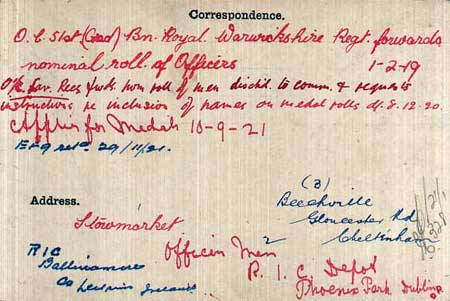 Correspondence.
O.C. 51st (Grad) Bn. Royal Warwickshire Regt. forwards
nominal roll of Officers 1-2-19
O/c. Inf. Recs fwds nom roll of men disch'd to comm. & requests
instructions re inclusion of names on medal rolls d/. 8.12.20.
Applies for Medals 10-9-21
EF9 retd. 29/11/21.
Address.
Stowmarket
RIC
Ballinamore
Co Ireland
Officer Men
2
R. I. C Depot
Phoenix Park Dublin.
(3)
Beechville
Gloucester Rd
Cheltenham